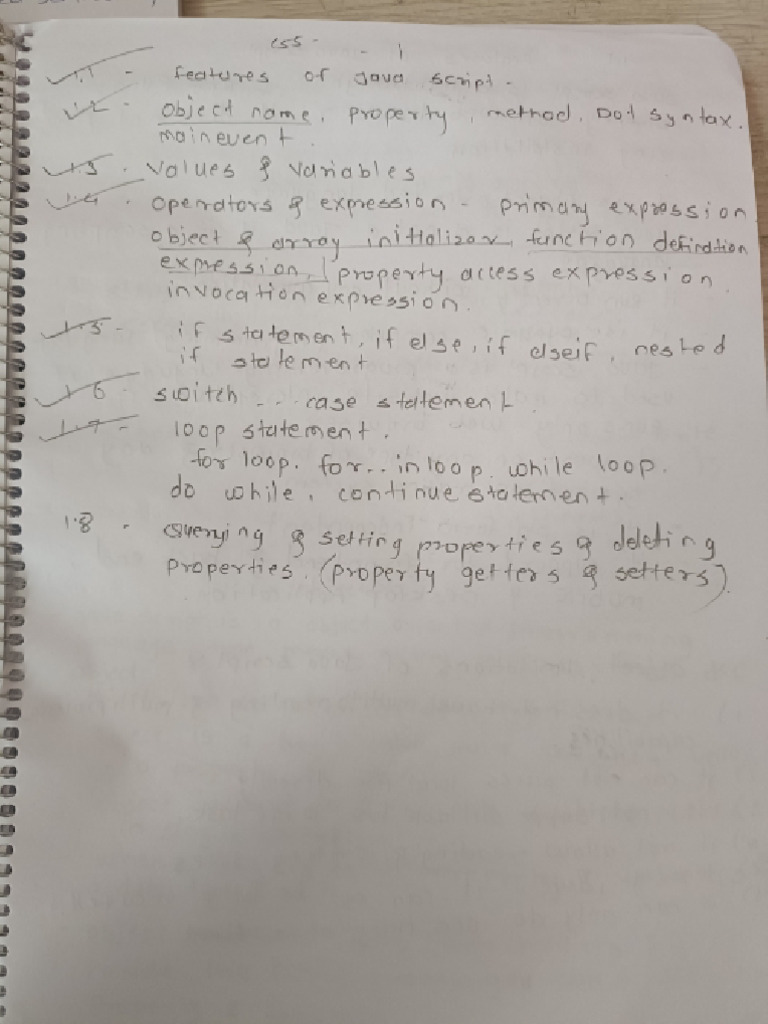 css - - 1
1.1 - features of Java script -
1.2 - object name, property, method, Dot syntax.
mainevent.
1.3 . values & variables
1.4 . operators & expression - primary expression
object & array initializor, function defination
expression, property access expression.
invocation expression.
1.5 - if statement, if else, if elseif, nested
if statement
1.6 - switch ... case statement.
1.7 - loop statement.
for loop. for.. in loop. while loop.
do while, continue statement.
1.8 . Querying & setting properties & deleting
properties. (property getters & setters).